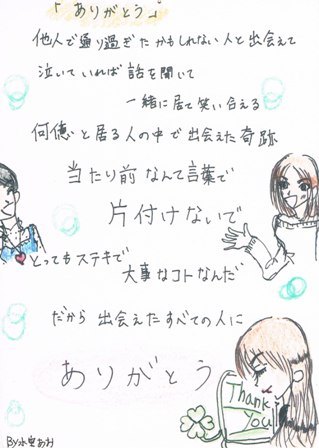 「ありがとう」
他人で通り過ぎたかもしれない人と出会えて
泣いていれば話を聞いて
一緒に居て笑い合える
何億と居る人の中で出会えた奇跡
当たり前なんて言葉で
片付けないで
とってもステキで
大事なコトなんだ
だから出会えたすべての人に
ありがとう
Thank
You!
By水里あみ